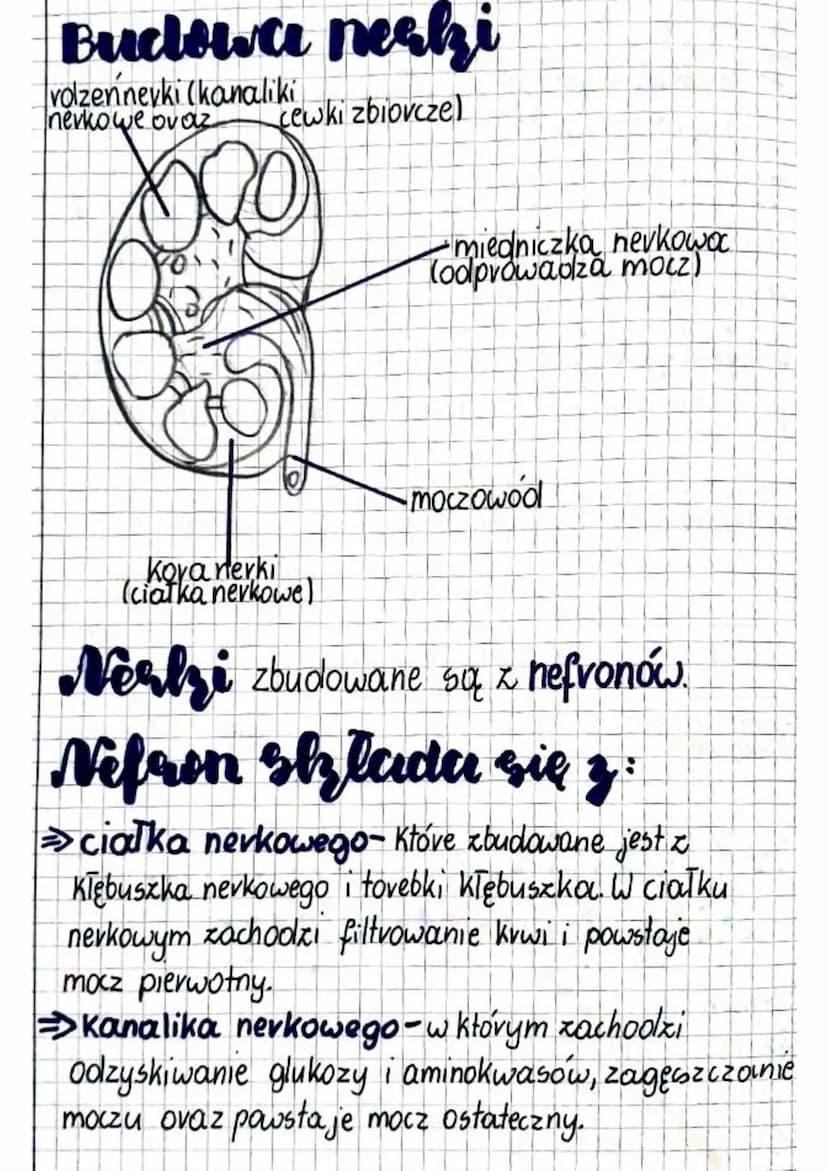 Budowa nerki
rdzeń nerki (kanaliki
nerkowe oraz cewki zbiorcze)
miedniczka nerkowa
(odprowadza mocz)
moczowód
Kora nerki
(ciałka nerkowe)
Nerki zbudowane są z nefronów.
Nefron składa się z:
⇒ ciałka nerkowego - Które zbudowane jest z
Kłębuszka nerkowego i torebki Kłębuszka. W ciałku
nerkowym zachodzi filtrowanie Krwi i powstaje
mocz pierwotny.
⇒ Kanalika nerkowego - w którym zachodzi
odzyskiwanie glukozy i aminokwasów, zagęszczanie
moczu oraz powstaje mocz ostateczny.